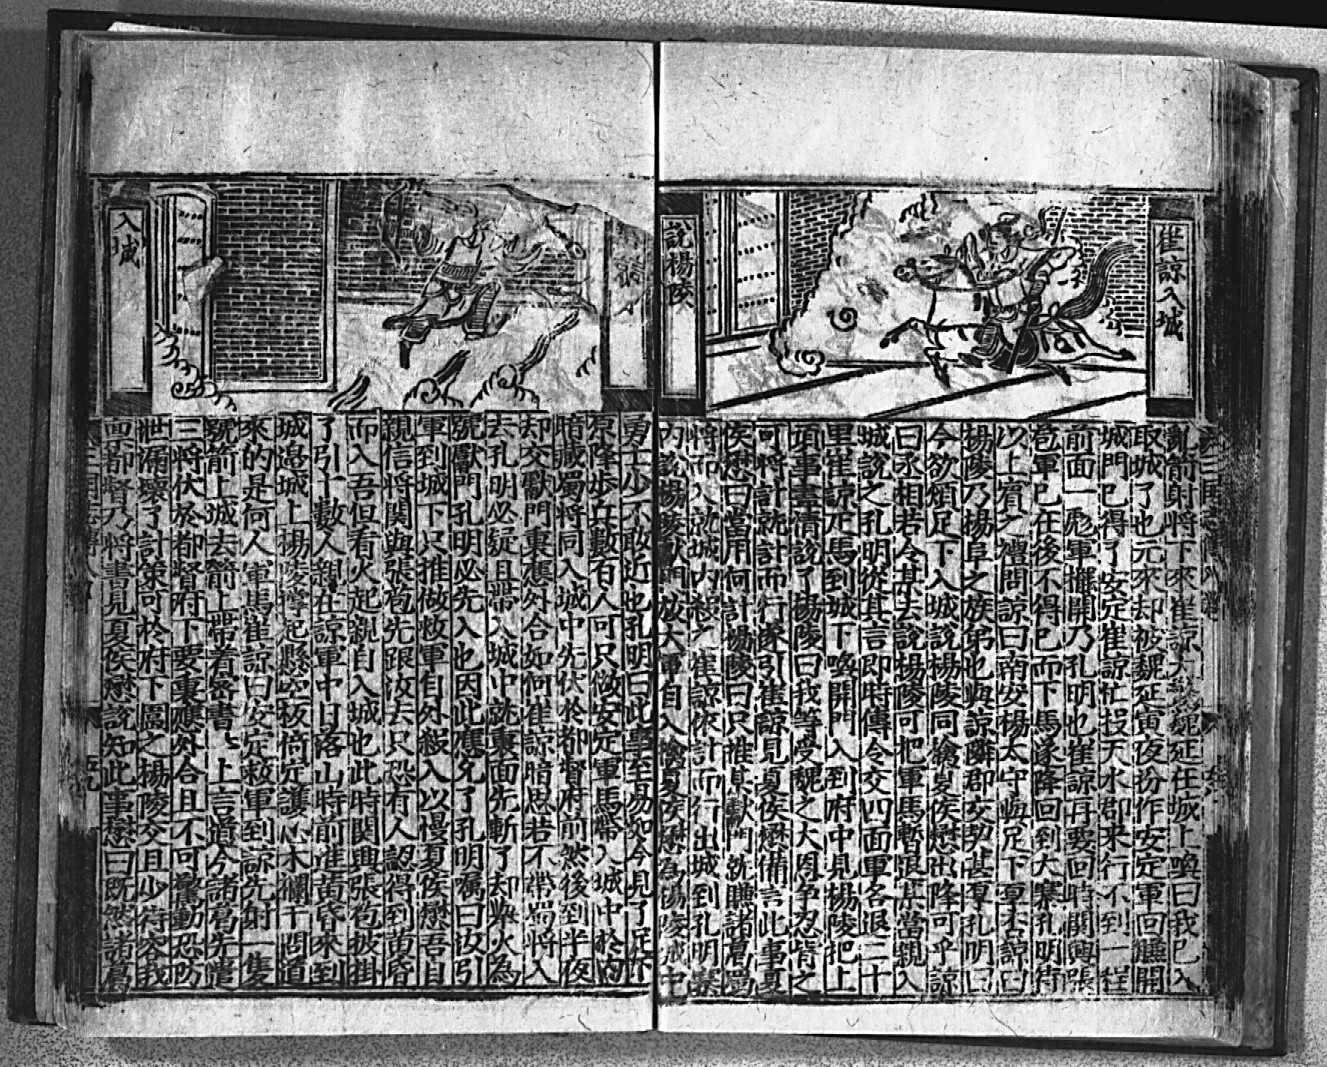 崔諒入城
說楊陵
亂箭射將下來崔諒大驚魏延在城上喚曰我已入
取城了也元來却被魏延寅夜扮作安定軍回賺開
城門已得了安定崔諒忙投天水郡来行不到一程
前面一彪軍擺開乃孔明也崔諒再要回時關興張
苞軍已在後不得已而下馬遂降回到大寨孔明待
以上賓之禮問諒曰南安楊太守與足下厚否諒曰
楊陵乃楊阜之族弟也與諒隣郡交契甚厚孔明曰
今欲煩足下入城說楊陵同擒夏侯懋出降可乎諒
曰丞相若令某去說楊陵可把軍馬暫退某當親入
城說之孔明從其言即時傳令交四面軍各退二十
里崔諒疋馬到城下喚開門入到府中見楊陵把上
項事盡情說了楊陵曰我等受魏之大恩爭忍背之
可將計就計而行遂引崔諒見夏侯懋備言此事夏
侯懋曰當用何計楊陵曰只推某獻門就賺諸葛蜀
將而入就城内殺之崔諒依計而行出城到孔明寨
内說楊陵獻門放大軍自入擒夏侯懋為楊陵城中
入城
勇士少不敢近也孔明曰此事至易如今見了足下
原降步兵數百人可只做安定軍馬帶入城中於内
暗藏蜀將同入城中先伏於都督府前然後到半夜
却交獻門裏應外合如何崔諒暗思若不帶蜀將入
去孔明必疑且帶入城中就裏面先斬了却舉火為
號獻門孔明必先入也因此應允了孔明囑曰汝引
軍到城下只推做救軍自外殺入以慢夏侯懋吾自
親信將関與張苞先跟汝去只恐有人認得到黄昏
而入吾但看火起親自入城也此時関興張苞披掛
了引十數人親在諒軍中日落山時前進黄昏來到
城邉城上楊陵撑起懸空板倚定護心木欄干問道
來的是何人軍馬崔諒曰安定救軍到諒先射一隻
號箭上城去箭上帶着密書上言道今諸葛先遣
二將伏於都督府下要裏應外合且不可驚動恐防
泄漏壞了計策可於府下圖之楊陵交且少待容我
禀都督乃將書見夏侯懋說知此事懋曰既然諸葛